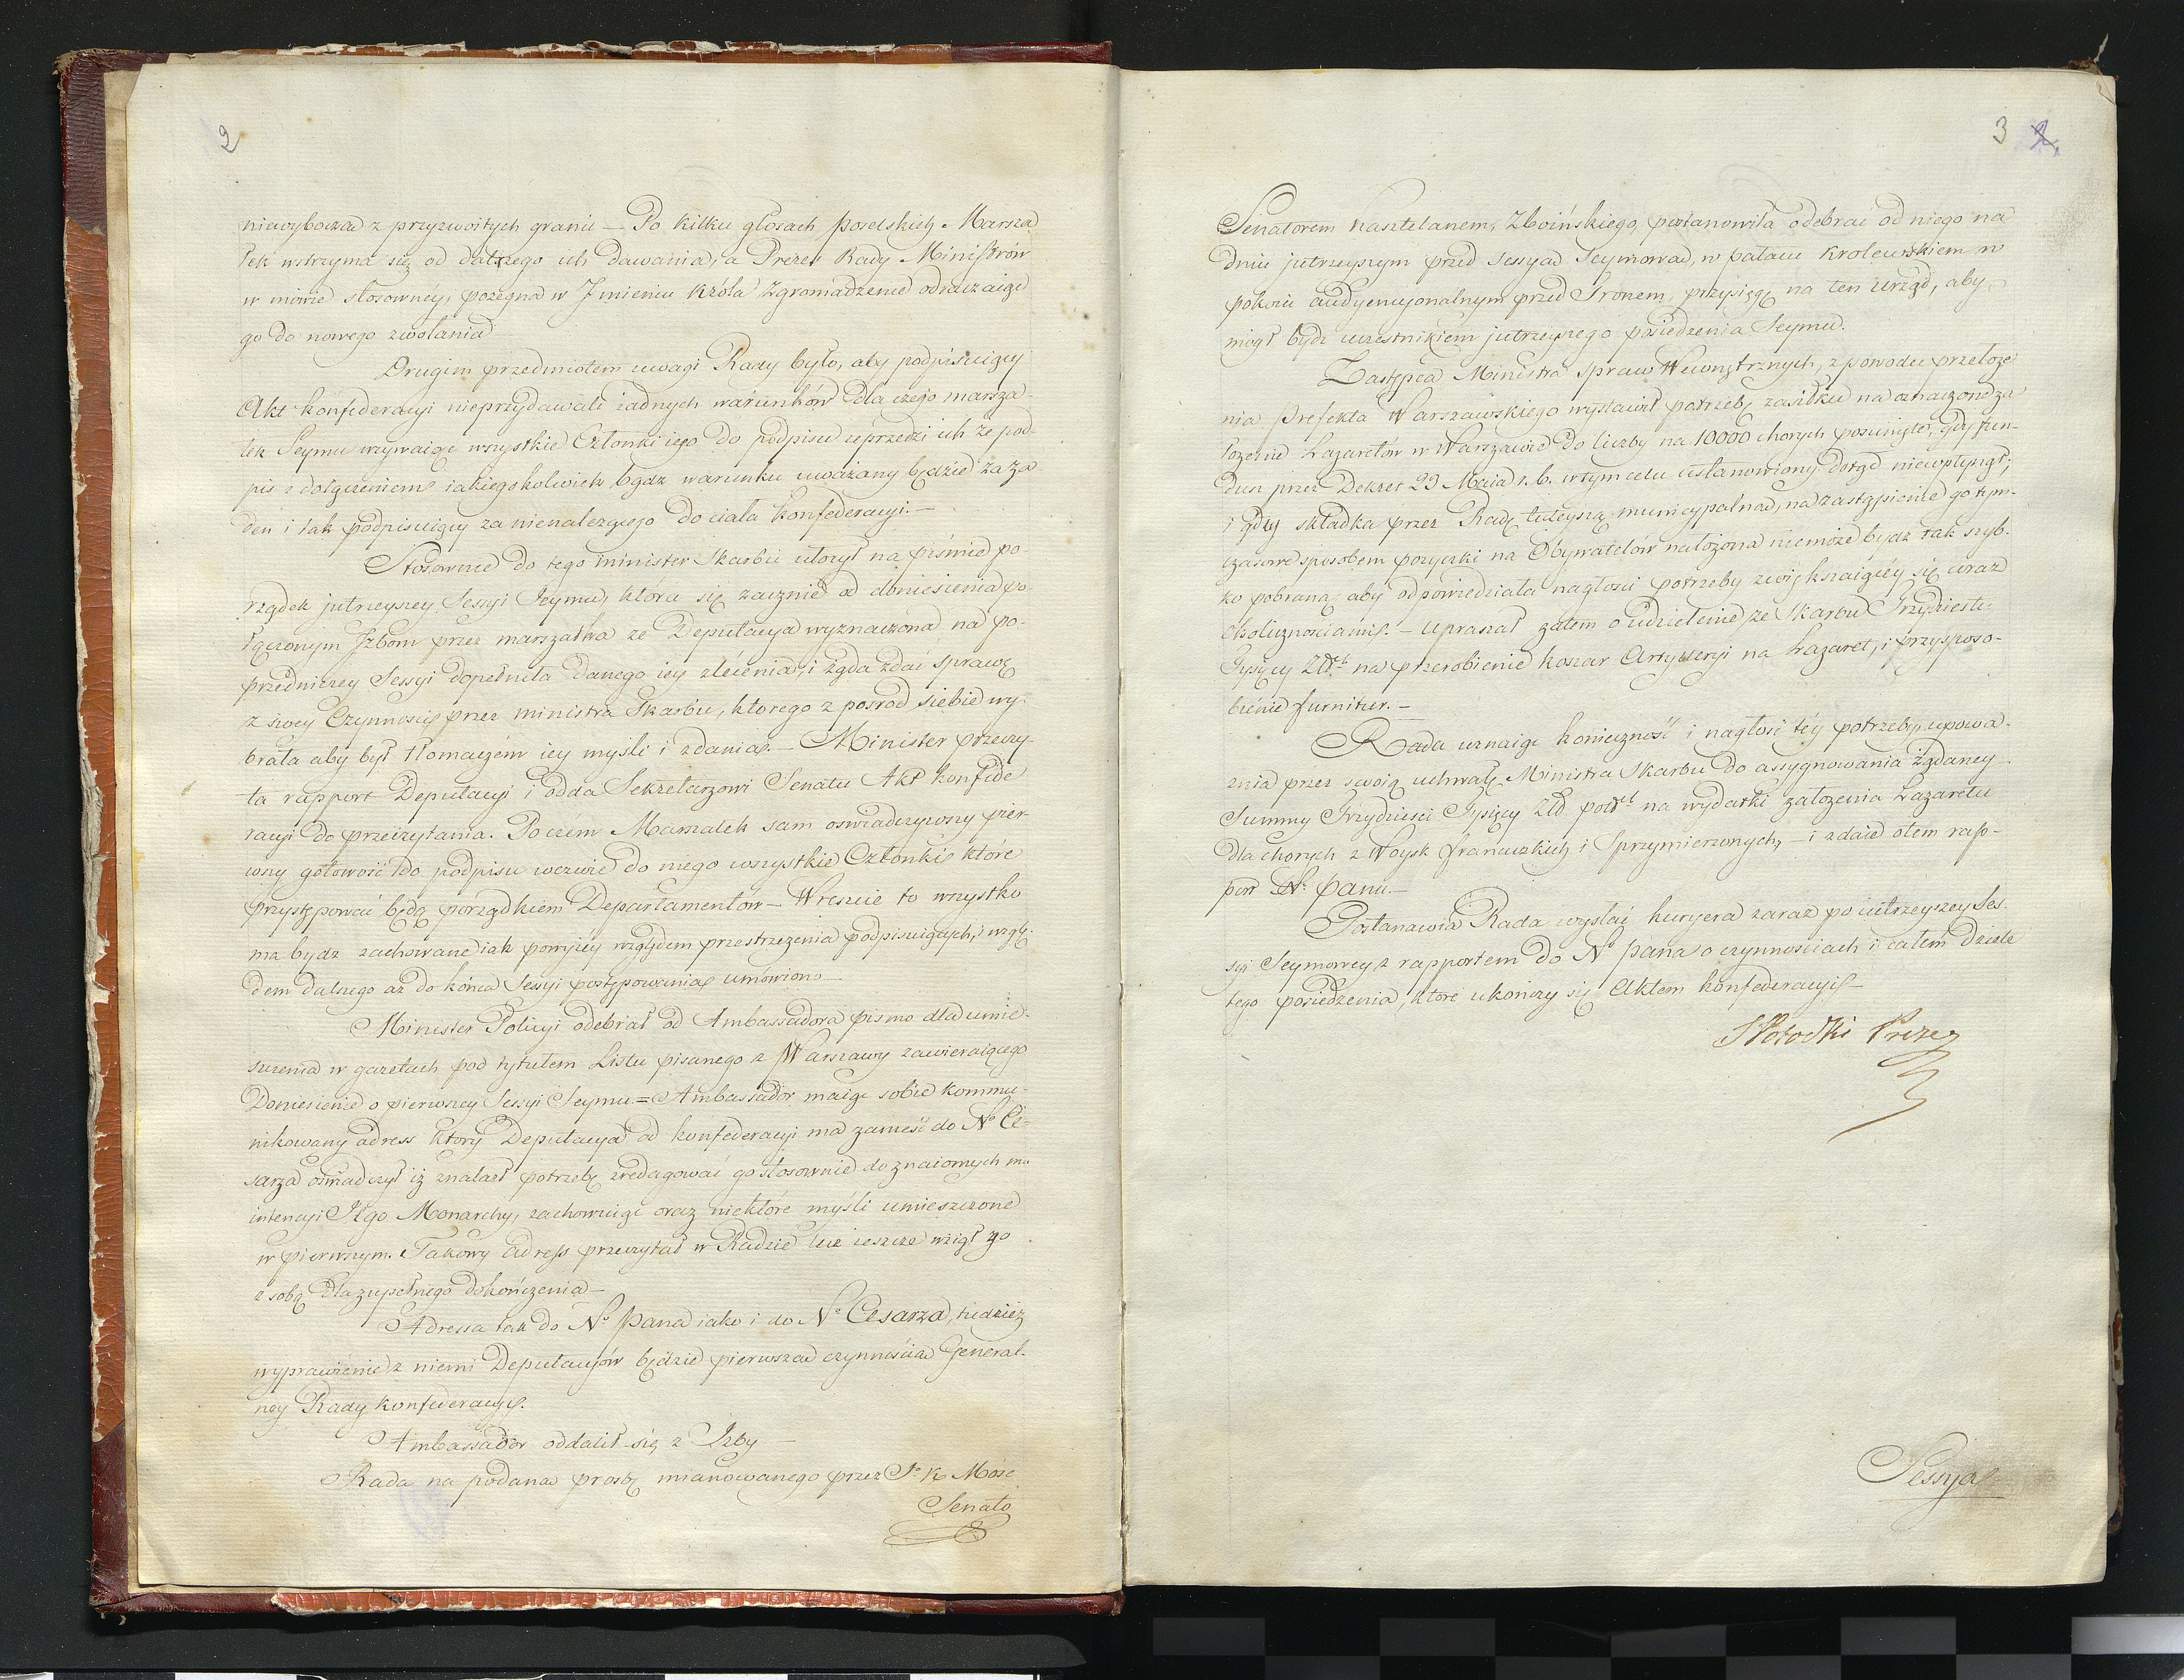 2
niewyboczać z przyzwoitych granic — Po kilku głosach poselskich Marsza
łek wstrzyma się od dalszego ich dawania, a Prezes Rady Ministrów
w mowie stosownéy, pożegna w Jmieniu Króla Zgromadzenie odraczaiąc
go do nowego zwołania
Drugim przedmiotem uwagi Rady było, aby podpisuiący
Akt konfederacyi nieprzydawali żadnych warunków dla czego marsza-
łek Seymu wzywaiąc wszystkie Członki iego do podpisu uprzedzi ich że pod-
pis z dołączeniem iakiegokolwiek bądz warunku uważany będzie za ża-
den i tak podpisuiący za nienależącego do ciała konfederacyi. —
Stosownie do tego minister Skarbu ułożył na piśmie po-
rządek jutrzeyszey Sessyi Seymu, która się zacznie od doniesienia po-
łączonym Jzbom przez marszałka że Deputacya wyznaczona na po-
przedniczey Sessyi dopełniła danego iey zlecenia, i żąda zdać sprawę
z swey Czynności przez ministra Skarbu, którego z pośrod siebie wy-
brała aby był tłomaczem iey myśli i zdania. — Minister przeczy-
ta rapport Deputacyi i odda Sekretarzowi Senatu Akt konfede
racyi do przeczytania. Poczém Marszałek sam oświadczywszy pier-
wszy gotowość do podpisu wezwie do niego wszystkie Członki które
przystępować będą porządkiem Departamentów — Wreszcie to wszystko
ma bydz zachowane iak powyżey względem przestrzeżenia podpisuiących, i wzglę-
dem dalszego aż do końca Sessyi postępowania umówiono —
Minister Policyi odebrał od Ambassadora pismo dla umie-
szczenia w gazetach pod tytułem Listu pisanego z Warszawy zawieraiącego
Doniesienie o pierwszey Sessyi Seymu = Ambassador maiąc sobie kommu-
nikowany adress który Deputacya od konfederacyi ma zanieść do No Ce-
sarza oświadczył iż znalazł potrzebę zredagować go stosownie do znaiomych mu
intencyi Jego Monarchy, zachowuiąc oraz niektóre myśli umieszczone
w pierwszym. Takowy adress przeczytał w Radzie lecz ieszcze wziął go
z sobą dla zupełnego dokończenia —
Adressa tak do No Pana iako i do No Cesarza, tudzież
wyprawienie z niemi Deputacyów będzie pierwszą czynnością General-
ney Rady konfederacyi.
Ambassador oddalił się z Jzby —
Rada na podaną prośbę mianowanego przez J. K. Mość
Senato
3 2
Senatorem Kasztelanem, Zboińskiego, postanowiła odebrać od niego na
dniu jutrzeyszym przed Sessyą Seymową, w pałacu Krolewskiem w
pokoiu audyencyonalnym przed Tronem, przysięgę na ten urząd, aby
mógł bydz uczestnikiem jutrzeyszego posiedzenia Seymu.
Zastępca Ministra Spraw Wewnętrznych, z powodu przełoże
nia Prefekta Warszawskiego wystawił potrzebę zasiłku na oznaczone za
łożenie Lazaretów w Warszawie do liczby na 10000 chorych posunięte, gdy fun-
dusz przez Dekret 29 Maia r. b. w tym celu ustanowiony dotąd niewpłynął;
i gdy składka przez Radę tuteyszą municypalną, na zastąpienie go tym-
czasowe sposobem pożyczki na Obywatelów nałożona niemoże bydz tak szyb-
ko pobraną aby odpowiedziała nagłości potrzeby zwiększaiącéy się wraz
okolicznościami. — Upraszał zatem o udzielenie ze Skarbu Trzydziestu
Tysięcy Złt. na przerobienie koszar Artylleryi na Lazaret, i przysposo-
bienie furnitur. —
Rada uznaiąc konieczność i nagłość téy potrzeby, upowa-
żnia przez swoią uchwałę Ministra Skarbu do assygnowania żądaney
Summy Trzydzieści Tysięcy Złd pol. na wydatki założenia Lazaretu
dla chorych z Woysk francuzkich i Sprzymierzonych, — i zdaie o tem rap-
port No Panu. —
Postanawia Rada wysłać kuryera zaraz po jutrzeyszey Ses
syi Seymowey z rapportem do No Pana o czynnościach i całém dziele
tego posiedzenia, które ukończy się Aktem konfederacyi —
S Potocki Prezes
Sessya